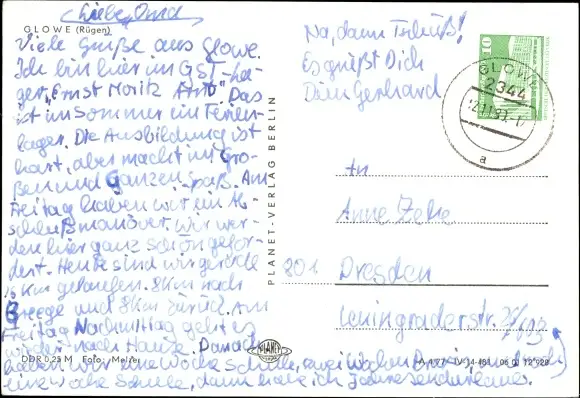 Liebe
GLOWE (Rügen)
Viele Grüße aus Glowe.
Ich bin hier im GST-La-
ger "Ernst Moritz Arndt". Das
ist im Sommer ein Ferien-
lager. Die Ausbildung ist
hart, aber macht im Gro-
ßen und Ganzen Spaß. Am
Freitag haben wir ein Ab-
schlußmanöver. Wir wer-
den hier ganz schön gefor-
dert. Heute sind wir gerade
16 km gelaufen. 8km nach
Breege und 8km zurück. Am
Freitag Nachmittag geht es
wieder nach Hause. Danach
haben wir eine Woche Schule, zwei Wochen
eine Woche Schule, dann habe ich
DDR 0,25 M Foto: Melzer
PLANET-VERLAG BERLIN
PLANET
Na, dann Tschüß!
Es grüßt Dich
Dein Gerhard
10
GLOWE
2344
a
An
Anne
801 Dresden
Leningraderstr.
A 1/77 IV-14-481